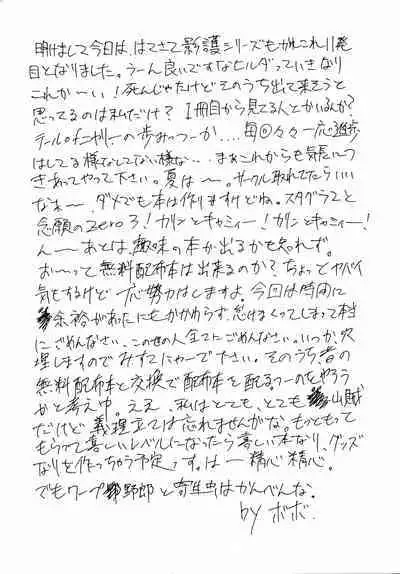 明けまして今日は、はてさて影護シリーズもかれこれ11発
目となりました。うーん良いですなヒルダっていきなり
これかーい!死んじゃたけどそのうち出て来そうと
思ってるのは私だけ?1冊目から見てる人とかいるんか?
の歩みっつーか....毎回々々一応進歩
はしてる様なしてない様な...まぁこれからも気長につ
きあってやって下さい。夏は〜。サークル取れてたらいい
なぁ〜ダメでも本は作りますけどね。スタグラ2と
念願のZero3!カリンとキャミィー!カリンとキャミィー!
ん〜あとは、趣味の本が出るかも知れず。
お〜って無料配布本は出来るのか?ちょっとヤバイ
気もするけど一応努力はしますよ。今回は時間に
余裕があったにもかかわらず、怠けまくってしまって本当
にごめんなさい。この他の人全てにごめんなさい。いつか、穴
埋しますのでみすてにゃーで下さい。そのうち、君の
無料配布本と交換で配布本を配るっつーのをやろう
かと考え中。ええ、私はとても、とても山賊
だけど義理立ては忘れませんがな。もっともって
もらって喜しいレベルになったら喜しい本なり、グッズ
なりを作っちゃう予定です。は〜精心精心。
でもワープ野郎と寄生虫はかんべんな。
by ボボ.